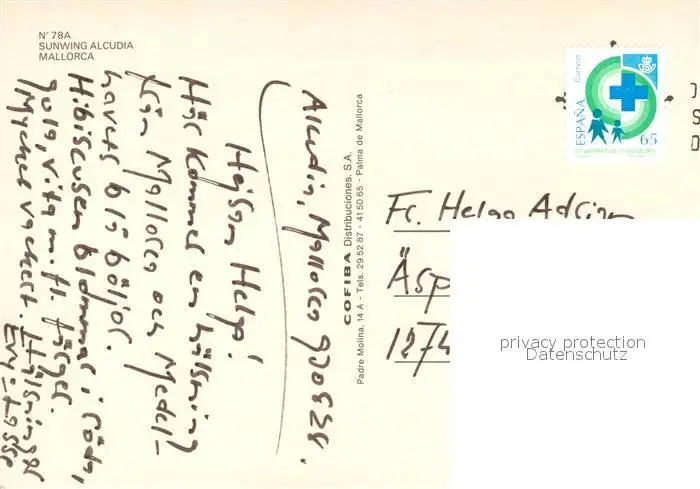 N° 78A
SUNWING ALCUDIA
MALLORCA
Alcudia, Mallorca 970525.
Hejsan Helga!
Här kommer en hälsning
från Mallorca och Medel-
havets blå böljor.
Hibiscusen blommar i röda,
gula, vita m.fl. färger.
Mycket vackert. Hälsningar
Evy-Lasse
COFIBA Distribuciones, S.A.
Padre Molina, 14 A - Tels. 29 52 87 - 41 50 65 - Palma de Mallorca
Correos
ESPAÑA
65
Fr. Helga Adrian
Äsp
1274
privacy protection
Datenschutz